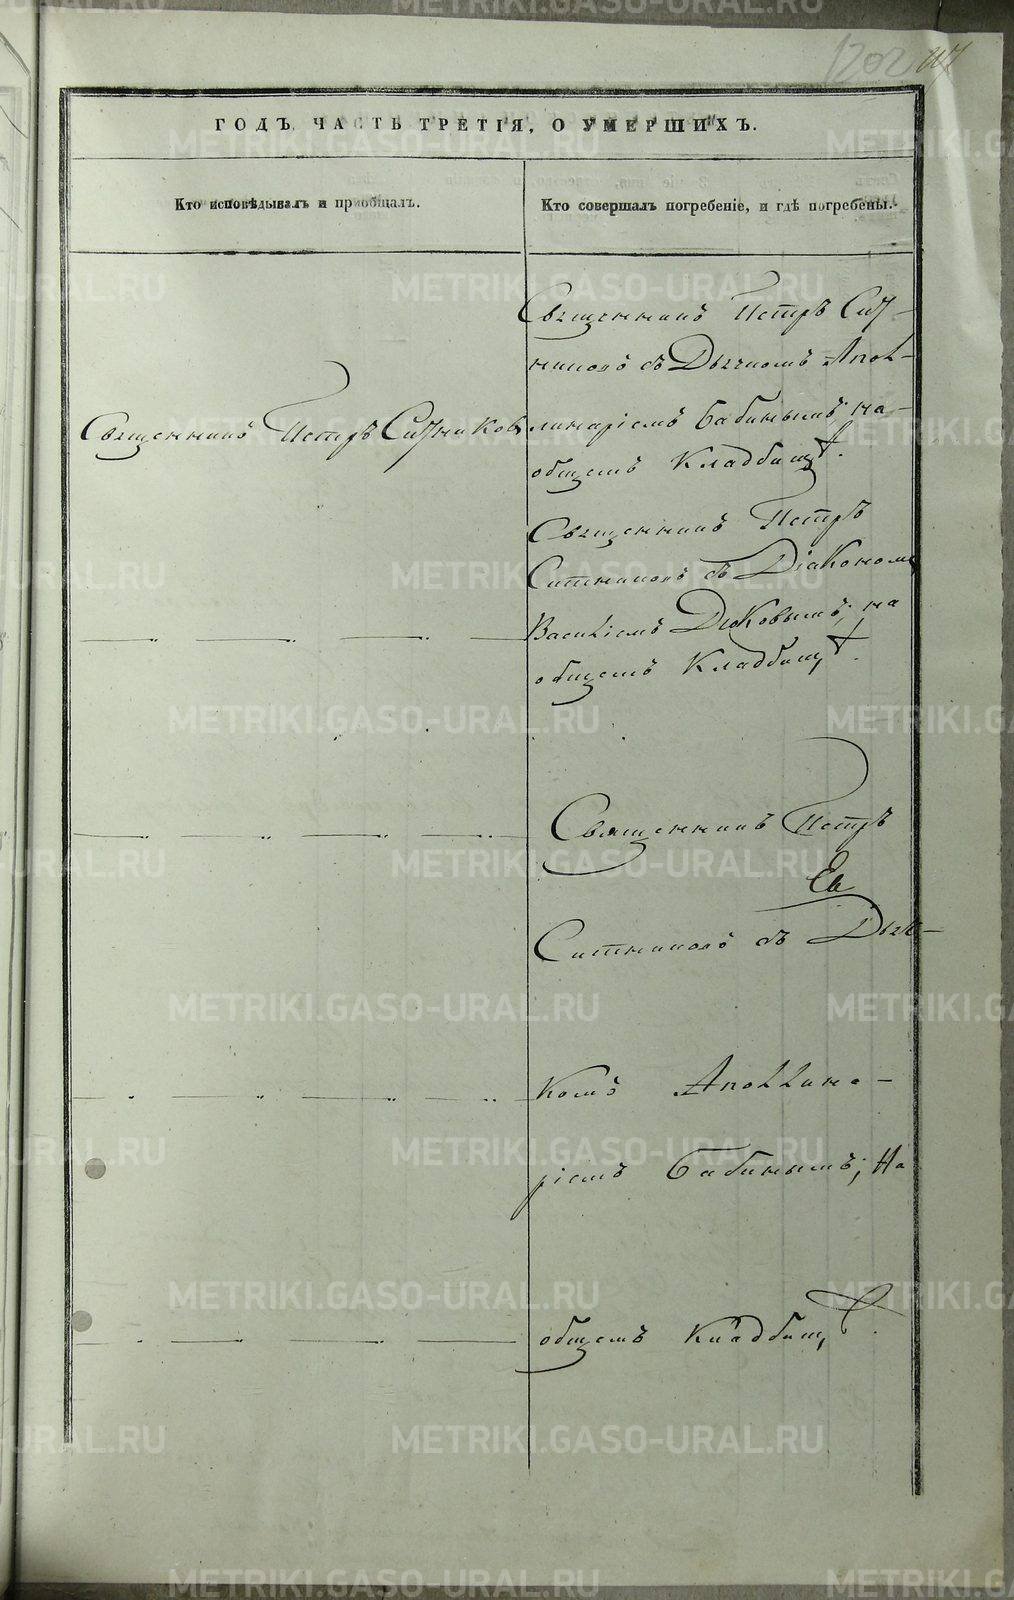 1202
ГОДЪ. ЧАСТЬ ТРЕТІЯ, О УМЕРШИХЪ.
Кто исповѣдывалъ и пріобщалъ.
Кто совершалъ погребеніе, и гдѣ погребены.
Священникъ Петръ Ситниковъ
Священникъ Петръ Сит-
никовъ съ Дьячкомъ Апол-
линаріемъ Бабинымъ; на
общемъ Кладбищѣ.
Священникъ Петръ
Ситниковъ съ Діакономъ
Василіемъ Дюковымъ; на
общемъ Кладбищѣ.
Священникъ Петръ
Ситниковъ съ Дьяч-
комъ Аполлина-
ріемъ Бабинымъ; на
общемъ Кладбищѣ.
METRIKI.GASO-URAL.RU